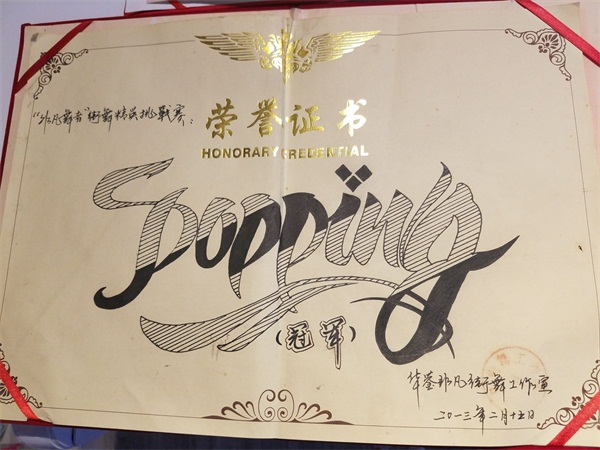 “非凡舞者”街舞精英挑战赛：
荣誉证书
HONORARY CREDENTIAL
Popping
（冠军）
华蓥非凡街舞工作室
二〇一三年二月十五日